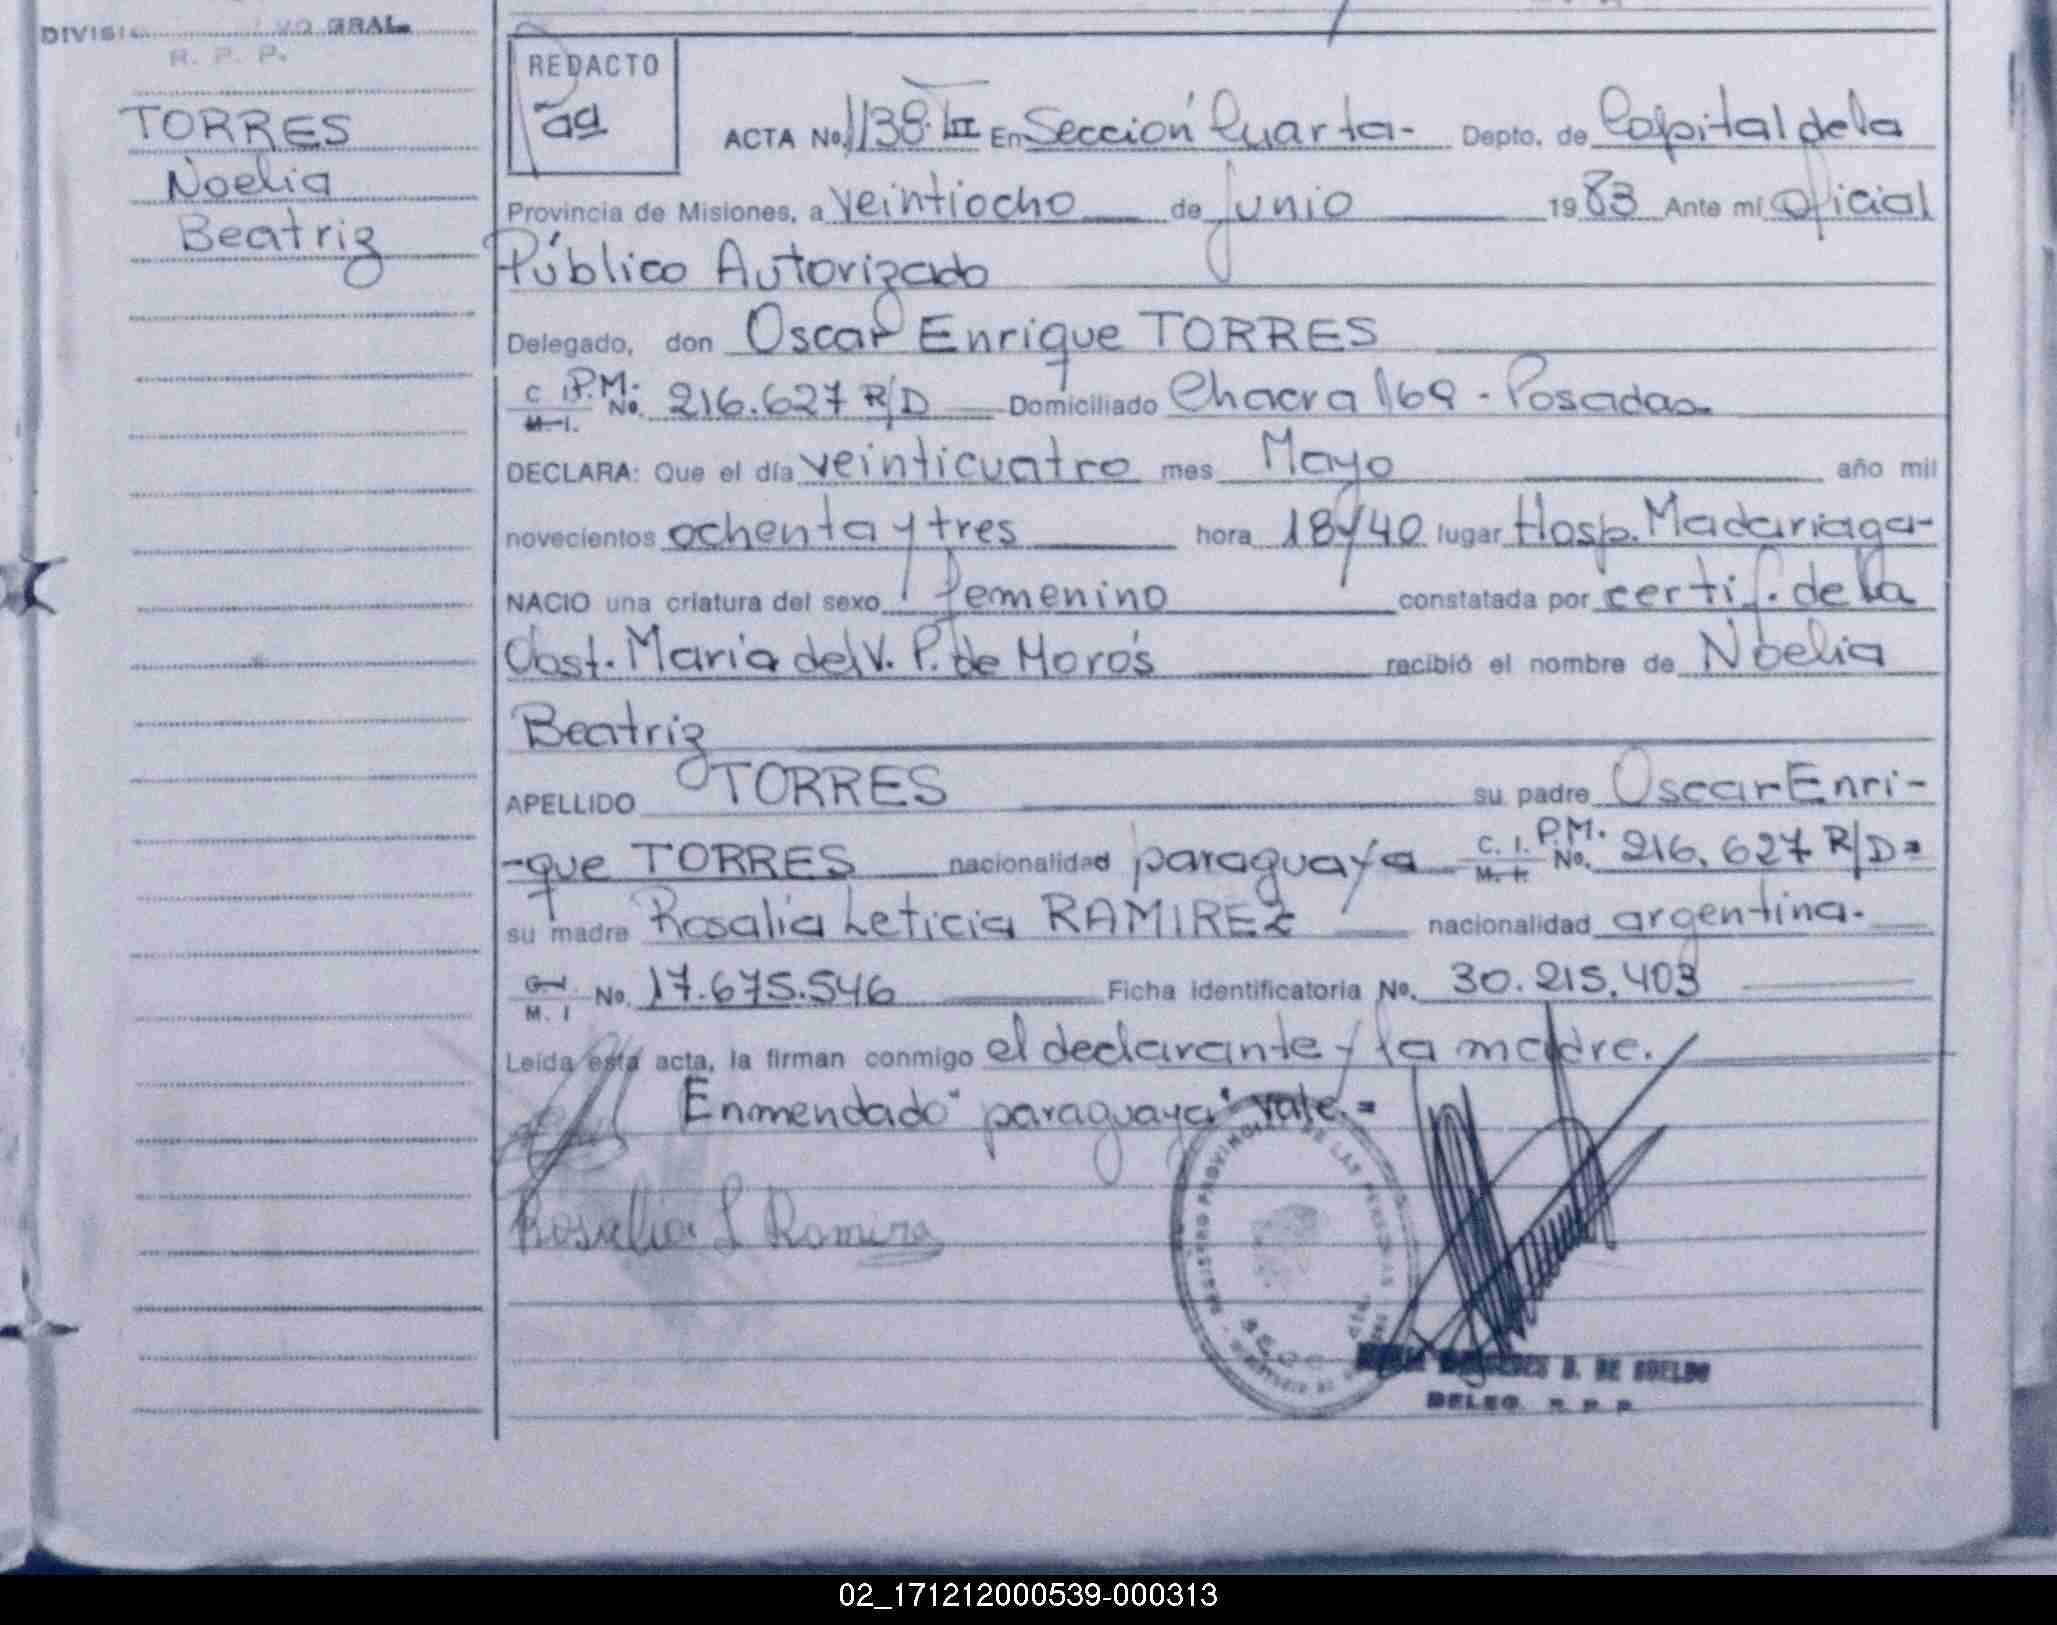 GRAL.
R. P. P.
TORRES
Noelia
Beatriz
REDACTO
ACTA No. 1138. III En Sección Cuarta- Depto. de Capital de la
Provincia de Misiones, a veintiocho de junio 1983 Ante mí Oficial
Público Autorizado
Delegado, don Oscar Enrique TORRES
C. I. P.M. No. 216.627 R/D Domiciliado Chacra 169 - Posadas.
M. I.
DECLARA: Que el día veinticuatro mes Mayo año mil
novecientos ochenta y tres hora 18y40 lugar Hosp. Madariaga-
NACIO una criatura del sexo femenino constatada por certif. de la
Obst. María del V. P. de Morós recibió el nombre de Noelia
Beatriz
APELLIDO TORRES su padre Oscar Enri-
-que TORRES nacionalidad paraguaya C. I. P.M. No. 216.627 R/D=
M. I.
su madre Rosalia Leticia RAMIREZ nacionalidad argentina.
C. I. No. 17.675.546 Ficha Identificatoria No. 30.215.403
M. I
Leída esta acta, la firman conmigo el declarante y la madre.
Enmendado "paraguaya" vale.=
Rosalia L Ramirez
REGISTRO PROVINCIAL DE LAS PERSONAS
B. DE SUELDO
DELEG. R. P. P.
02_171212000539-000313